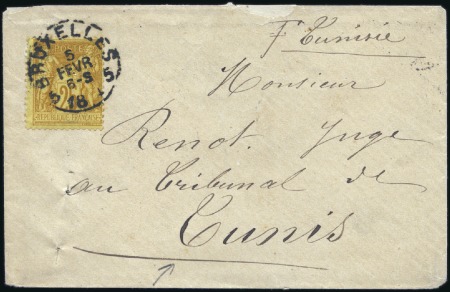 BRUXELLES 5
6
FEVR
6-S
18
POSTES
25
REPUBLIQUE FRANÇAISE
Tunisie
Monsieur
Renot. Juge
au Tribunal de
Tunis